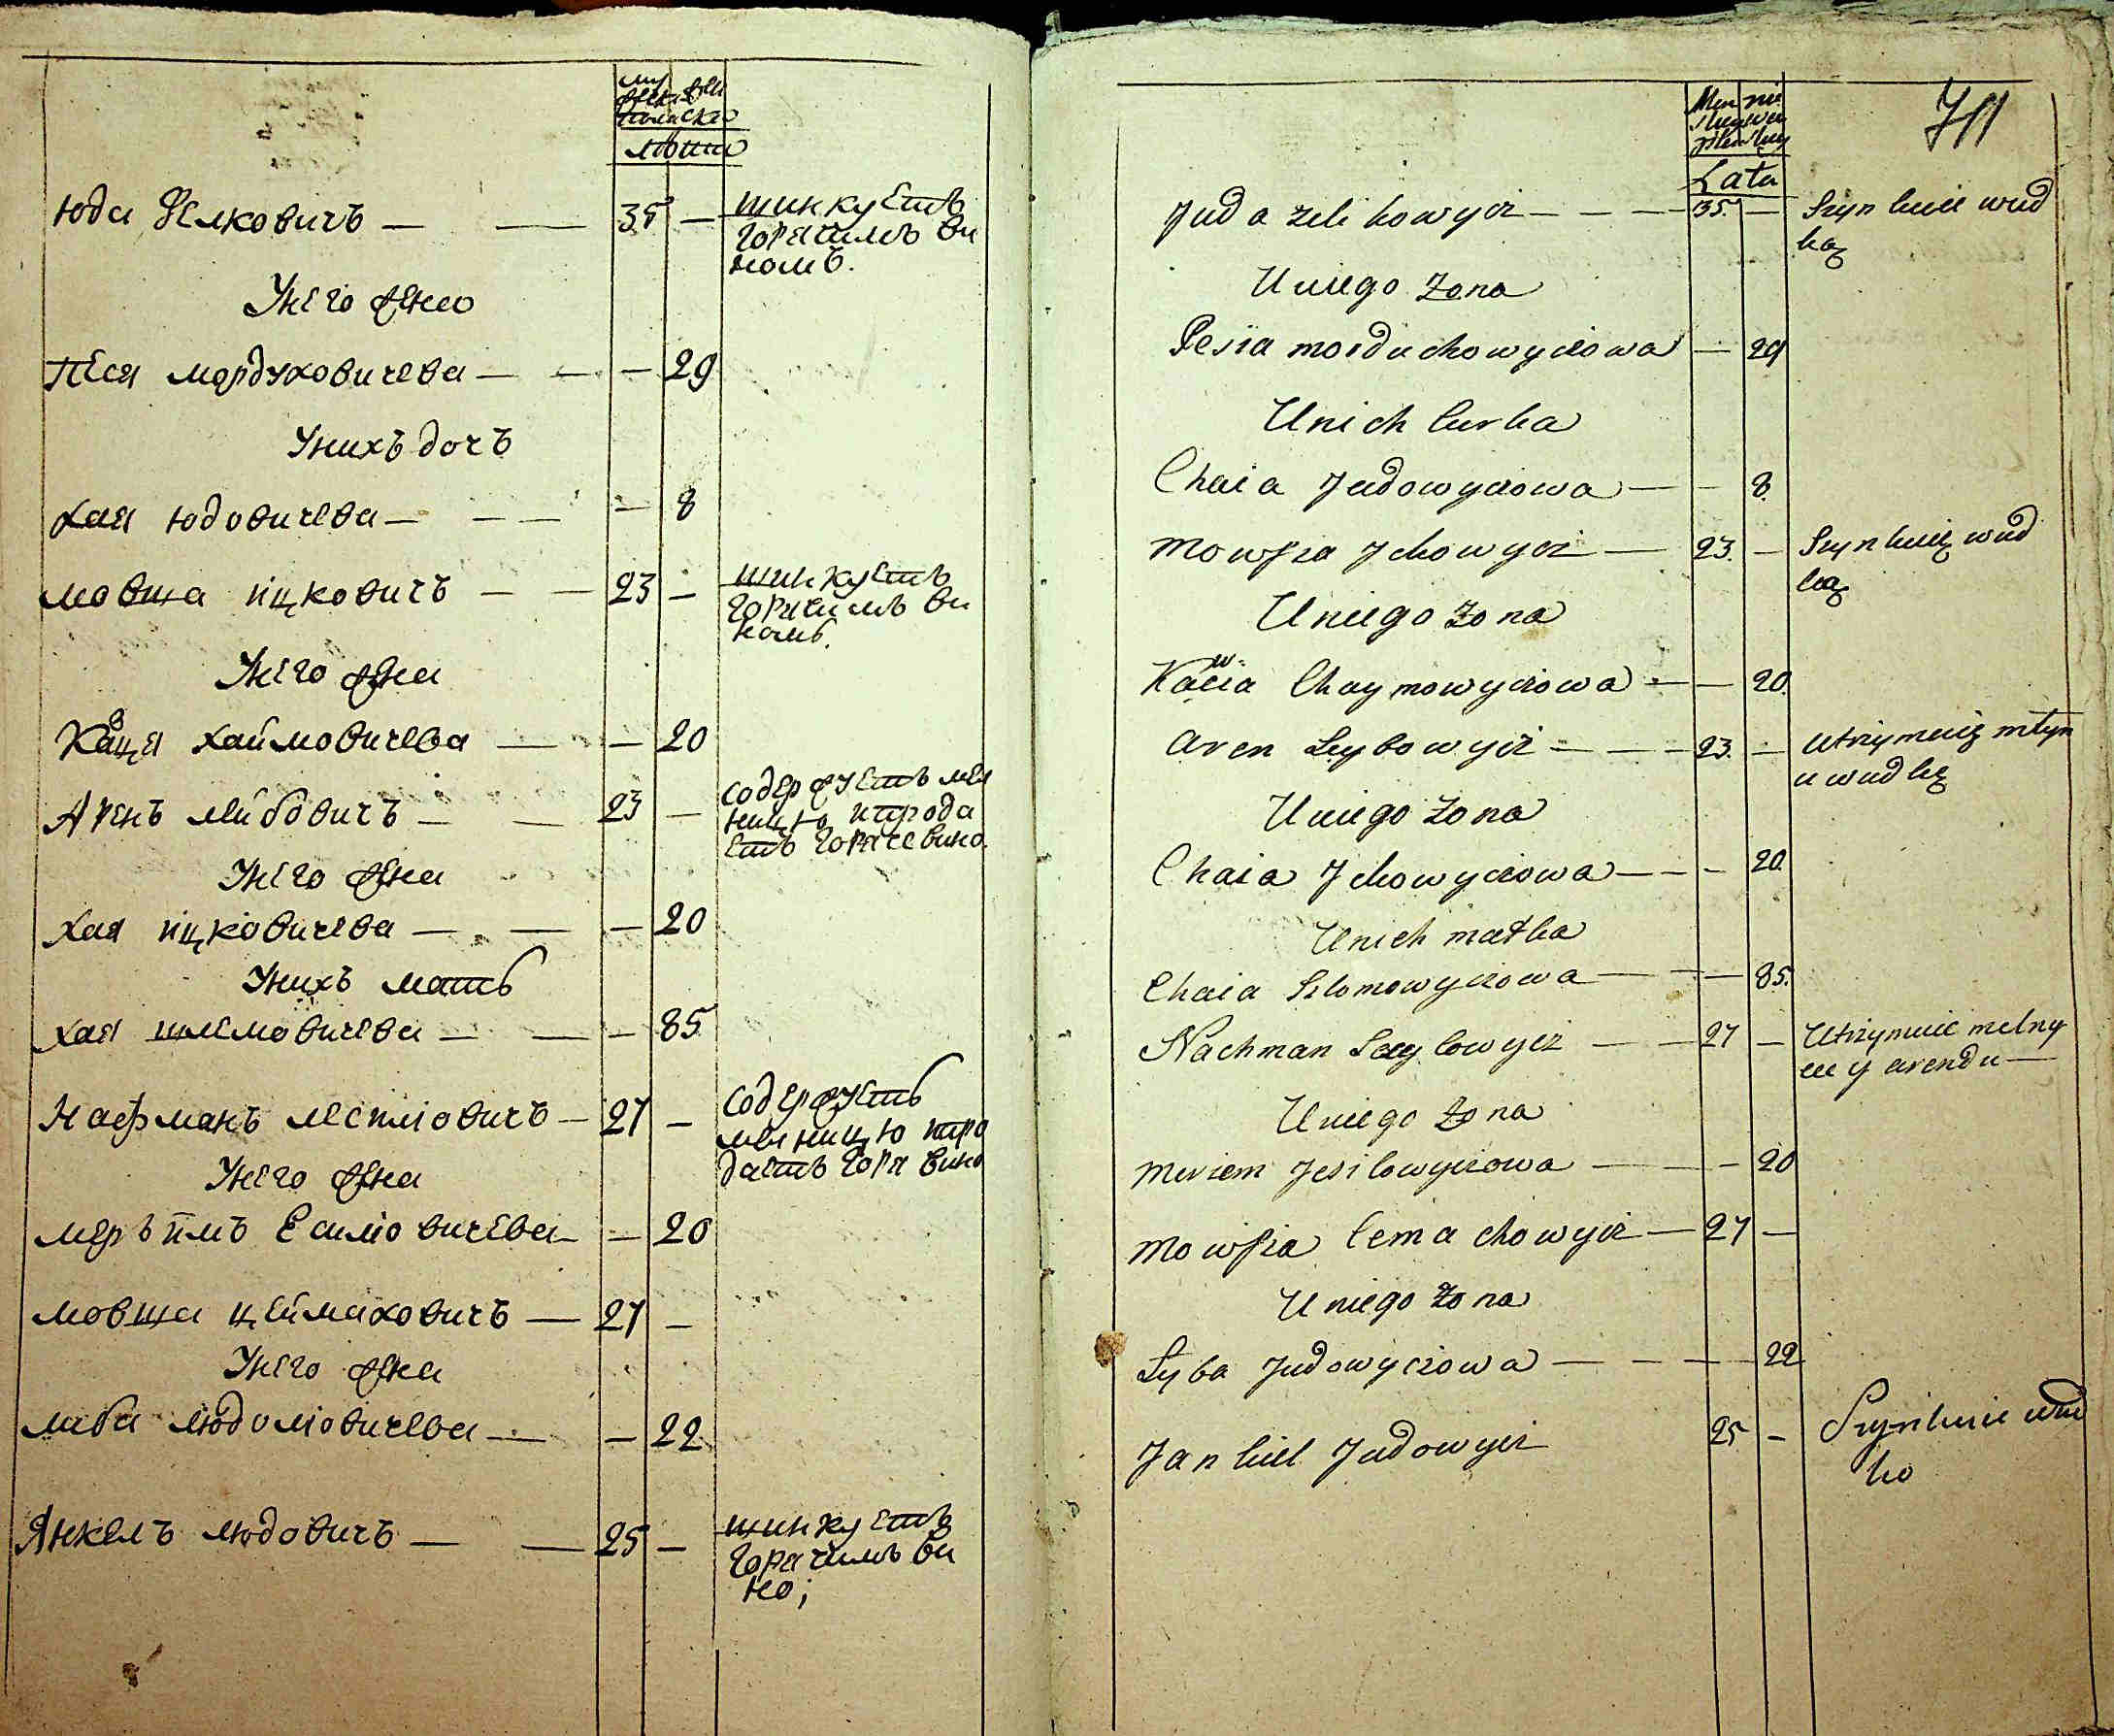 муж жен
ска
полаского
лѣта
Юда Зелковичъ — — 35 — шинкуетъ
горачимъ ви
номъ.
Унего жена
Песя мордуховичева — — — 29
Унихъ дочъ
хая юдовичева — — — — 8
мовша ицковичъ — — 23 — шинкуетъ
горачимъ ви
номъ.
Унего жена
Кавця хаймовичева — — 20
Аренъ лейбовичъ — — 23 — содержуетъ мел
ницю ипрода
етъ горачевино.
Унего жена
хая ицковичева — — — 20
Унихъ мать
хая шлемовичева — — — 85
Нафманъ — 27 — содержуетъ
мелницю про
даетъ гора вино
Унего жена
меръимъ Есиловичева — — 20
мовша цеймаховичъ — 27 —
Унего жена
либа юдоловичева — — 22
Янкелъ юдовичъ — — 25 — шинкуетъ
горачимъ ви
но;
711
Lata
Juda Zelikowycz — — — 35. — Szynkuie wud
ką
Uniego Zona
Pesia morduchowyczowa — 29
Unich Curka
Chaia Judowyczowa — — 8.
Mowsza Jckowycz — 23. — Szynkuię wud
ką
Uniego Zona
Kawcia Chaymowyczowa — — 20.
Aren Leybowycz — — — 23. — Utrzymuię młyn
u wudkę
Uniego Zona
Chaia Jckowyczowa — — — 20.
Unich matka
Chaia Szlomowyczowa — — — 85.
Nachman — — 27 — Utrzymuie melny
cu y arendu —
Uniego Zona
Meriem Jesilowyczowa — — — 20
Mowsza Cemachowycz — 27 —
Uniego Zona
Lyba Judowyczowa — — — — 22
Jankiel Judowycz 25 — Szynkuie wud
ko